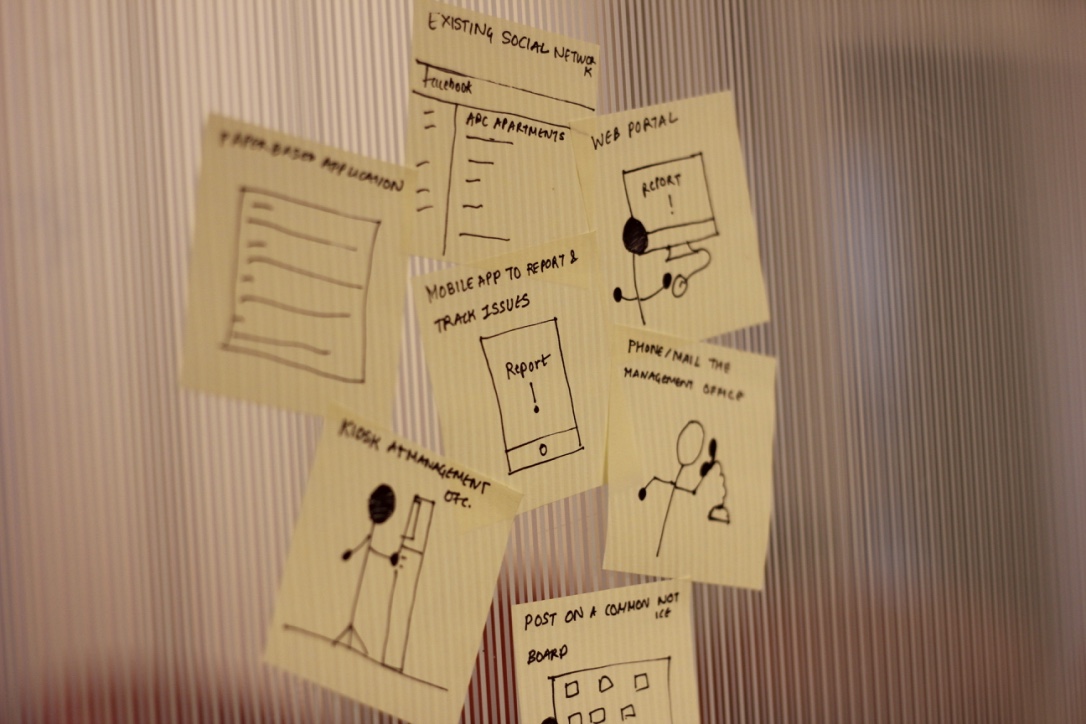 EXISTING SOCIAL NETWOR
K
Facebook
ADC APARTMENTS
WEB PORTAL
REPORT
!
PAPER-BASED APPLICATION
MOBILE APP TO REPORT &
TRACK ISSUES
Report
!
PHONE/MAIL THE
MANAGEMENT OFFICE
KIOSK AT MANAGEMENT
OFC.
POST ON A COMMON NOT
ICE
BOARD